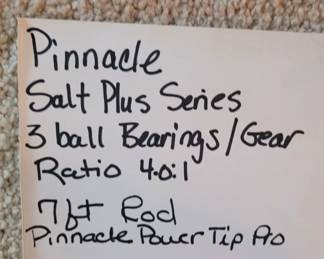 Pinnacle
Salt Plus Series
3 ball Bearings/Gear
Ratio 4.0:1
7ft Rod
Pinnacle Power Tip Pro